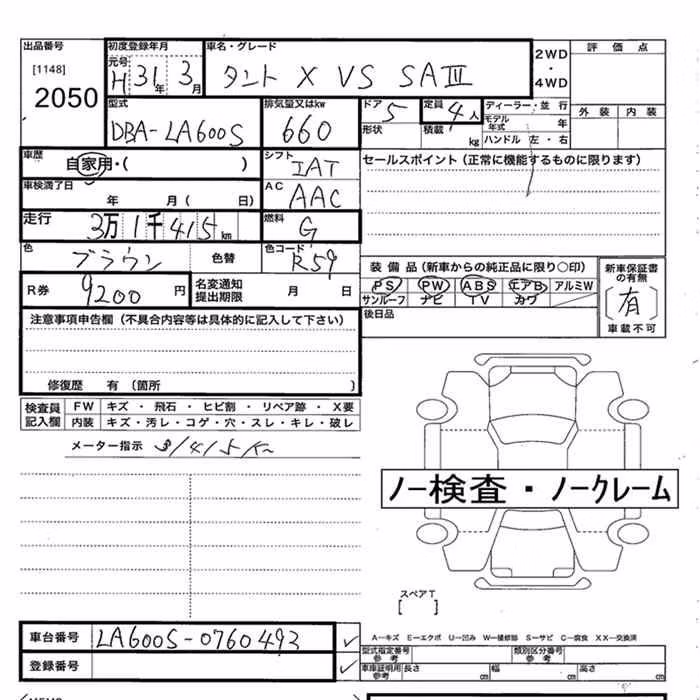 出品番号
[1148]
2050
初度登録年月
元号
H31年 3月
車名・グレード
タント X VS SAⅢ
2WD
・
4WD
評価点
外装 内装
型式
DBA-LA600S
排気量又はkw
660
ドア 5
形状
定員 4人
積載 kg
ディーラー・並行
モデル年式 年
ハンドル 左・右
車歴
自家用・( )
シフト
IAT
セールスポイント (正常に機能するものに限ります)
車検満了日
年 月 ( 日)
AC
AAC
走行
3万1千415km
燃料
G
色
ブラウン
色替
色コード
R59
装備品 (新車からの純正品に限り○印)
PS PW ABS エアB アルミW
サンルーフ ナビ TV カワ
新車保証書の有無
[有]
車載不可
R券
9200円
名変通知
提出期限
月 日
後日品
注意事項申告欄 (不具合内容等は具体的に記入して下さい)
修復歴 有 (箇所 )
検査員
記入欄
FW キズ ・ 飛石 ・ ヒビ割 ・ リペア跡 ・ X要
内装 キズ・汚レ・コゲ・穴・スレ・キレ・破レ
メーター指示 31415K
ノー検査・ノークレーム
スペアT
[ ]
車台番号
LA600S-0760492
登録番号
A―キズ E―エクボ U―凹み W―補修跡 S―サビ C―腐食 XX―交換済
型式指定番号
参考
類別区分番号
参考
車庫証明用
参考
長さ cm
幅 cm
高さ cm
MEMO